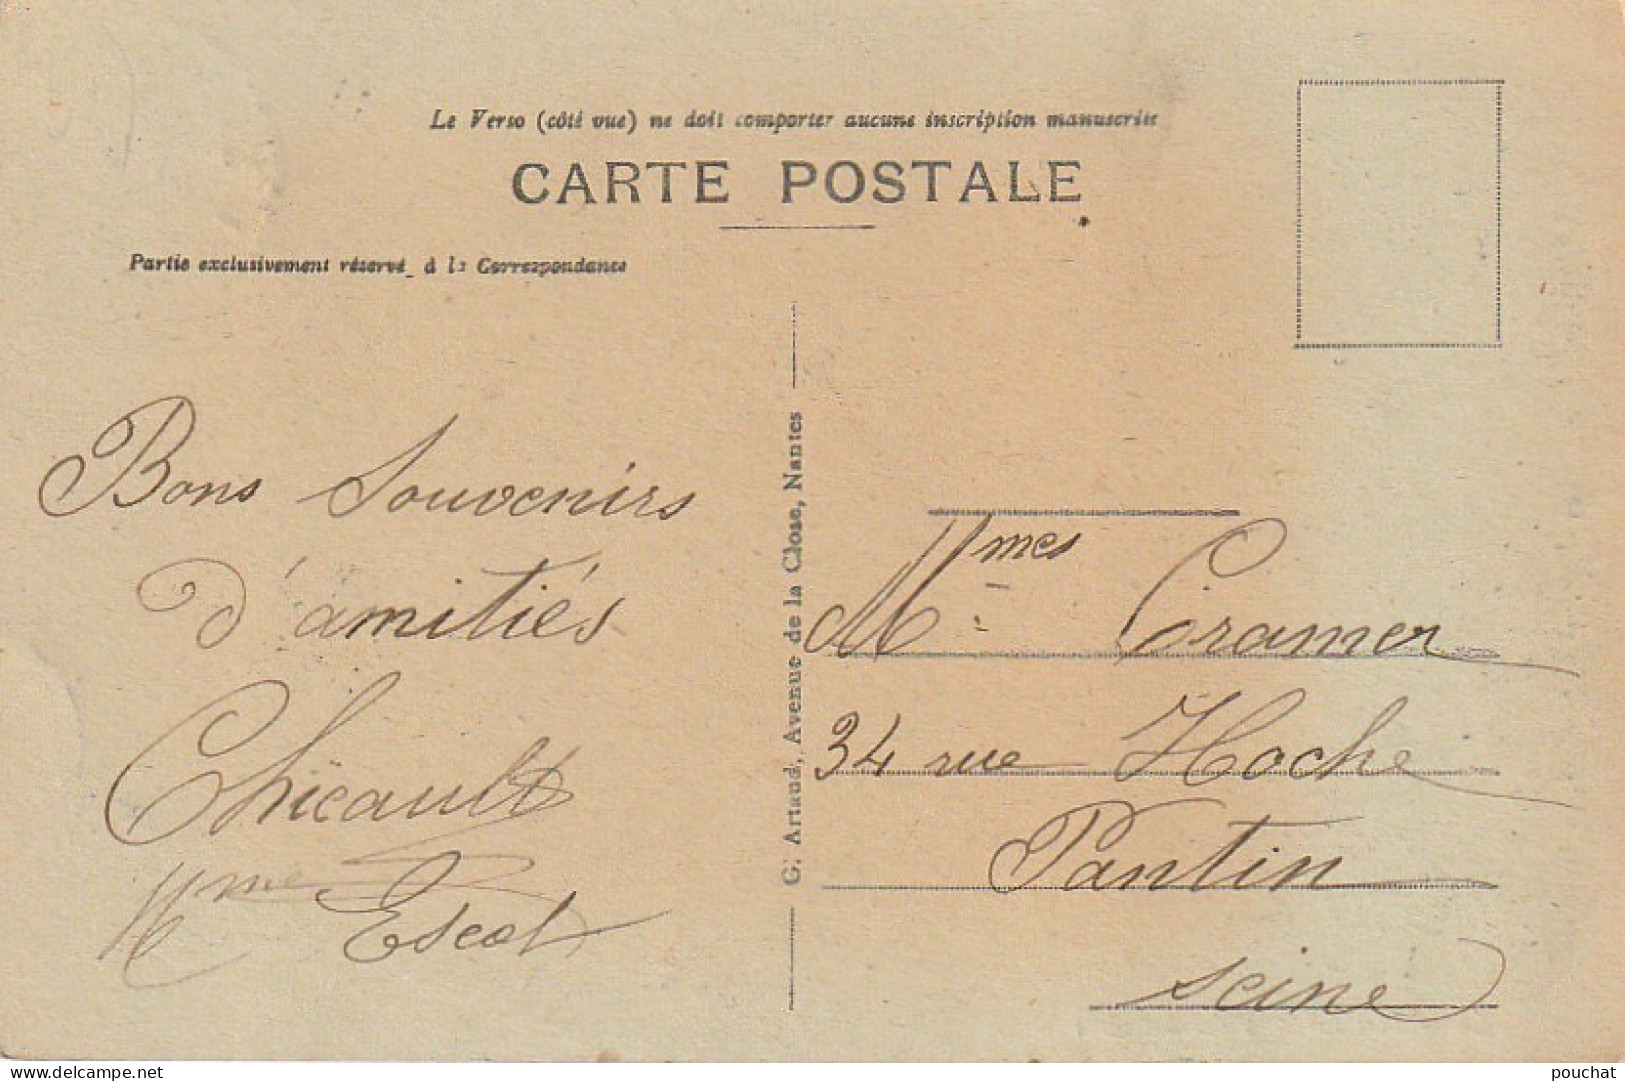 Le Verso (côté vue) ne doit comporter aucune inscription manuscrite
CARTE POSTALE
Partie exclusivement réservé à la Correspondance
Bons Souvenirs
d'amitiés
Chicault
Mme Escot
G. Artaud, Avenue de la Close, Nantes
Mmes Cramer
34 rue Hoche
Pantin
Seine
delcampe.net
pouchat